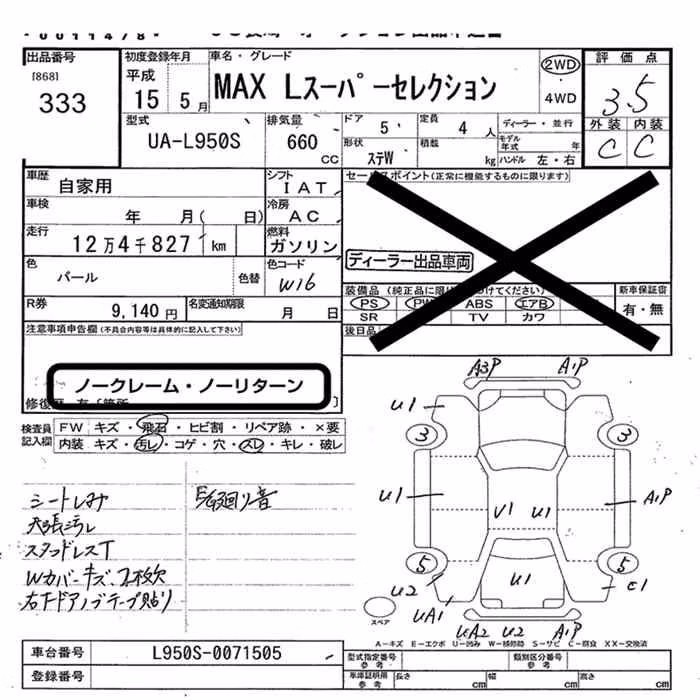 出品番号
[868]
333
初度登録年月
平成
15 5月
車名・グレード
MAX Lスーパーセレクション
2WD
4WD
評価点
3.5
外装 内装
C C
型式
UA-L950S
排気量
660
CC
ドア
5
定員
4 人
ディーラー・並行
モデル年式 年
形状
ステW
積載
kg
ハンドル 左・右
車歴
自家用
シフト
IAT
セールスポイント(正常に機能するものに限ります)
車検
年 月( 日)
冷房
AC
走行
12万4千827 km
燃料
ガソリン
ディーラー出品車両
色
パール
色替
色コード
W16
装備品 (純正品に限り
けてください)
新車保証書
PS PW ABS エアB
SR TV カワ
有・無
R券
9,140円
名変通知期限
月 日
後日品
注意事項申告欄(不具合内容等は具体的に記入して下さい)
ノークレーム・ノーリターン
検査員記入欄
FW キズ・飛石・ヒビ割・リペア跡・×要
内装 キズ・汚レ・コゲ・穴・スレ・キレ・破レ
シートしみ
天張汚レ
スタッドレスT
Wカバーキズ、2枚欠
右下ドアノブテープ貼り
A3P A1P
U1
3 3
U1 U1 U1 A1P
5 5
U2 U1 C1
UA1
UA2 U2 A1P
スペア
A-キズ E-エクボ U-凹み W-補修跡 S-サビ C-腐食 XX-交換済
車台番号
L950S-0071505
登録番号
型式指定番号
参考
類別区分番号
参考
車庫証明用
参考
長さ cm
幅 cm
高さ cm